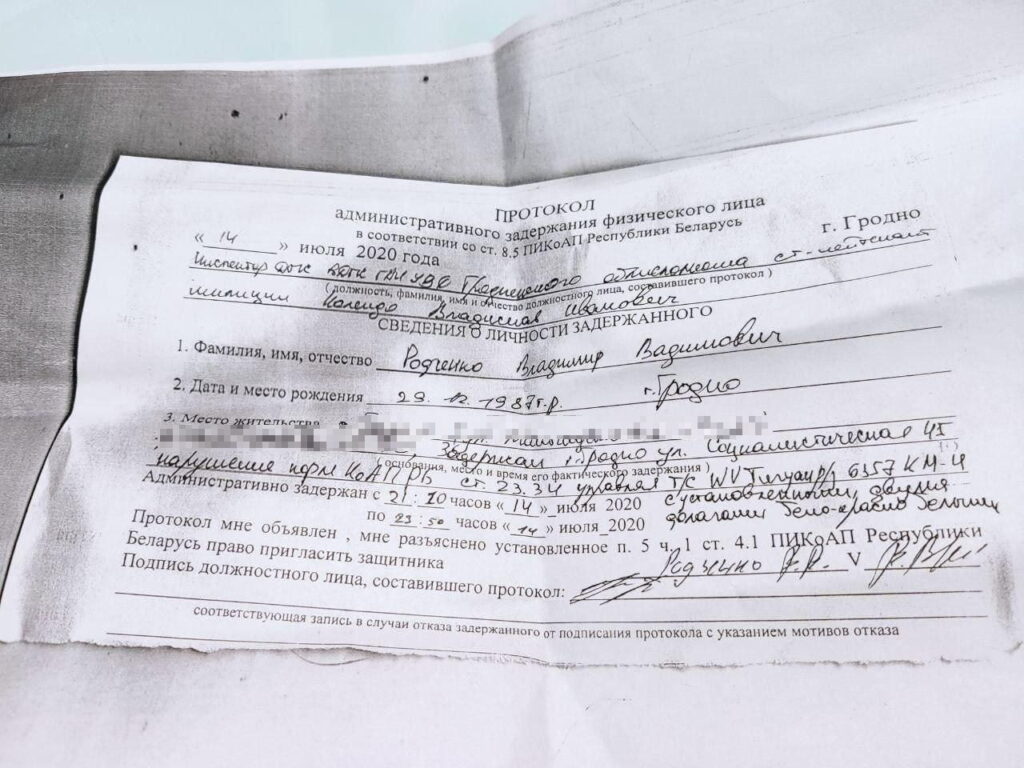 ПРОТОКОЛ
административного задержания физического лица
в соответствии со ст. 8.5 ПИКоАП Республики Беларусь
« 14 » июля 2020 года г. Гродно
Инспектор УВД Гродненского облисполкома ст. лейтенант
( должность, фамилия, имя и отчество должностного лица, составившего протокол )
милиции Владислав Иванович
СВЕДЕНИЯ О ЛИЧНОСТИ ЗАДЕРЖАННОГО
1. Фамилия, имя, отчество Родченко Владимир Вадимович
2. Дата и место рождения 29. 12. 1987г.р. г. Гродно
3. Место жительства
Задержан г. Гродно ул. Социалистическая
( основания, место и время его фактического задержания )
нарушение норм КоАП РБ ст. 23.34 управлял т/с WV Тигуан р/з 6357 КМ-4
Административно задержан с 21:10 часов « 14 » июля 2020 с установленными двумя
по 23:50 часов « 14 » июля 2020 флагами бело-красно-белыми
Протокол мне объявлен , мне разъяснено установленное п. 5 ч. 1 ст. 4.1 ПИКоАП Республики
Беларусь право пригласить защитника Родченко В.В. V
Подпись должностного лица, составившего протокол:
соответствующая запись в случаи отказа задержанного от подписания протокола с указанием мотивов отказа